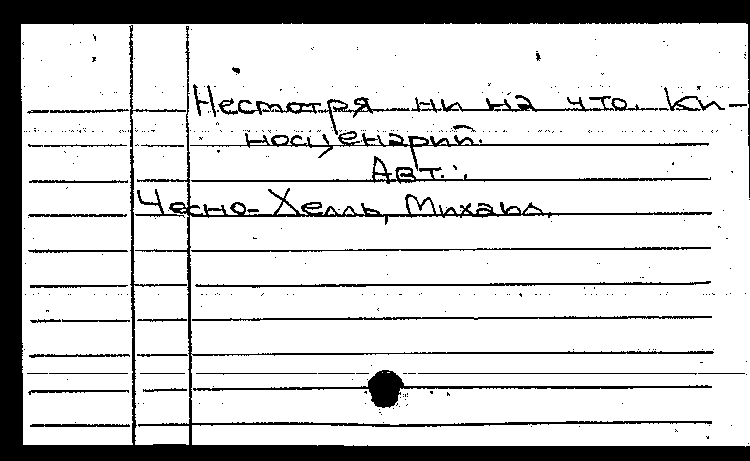 Несмотря ни на что. Ки-
носценарий.
Авт.:
Чесно-Хелль, Михаэл.